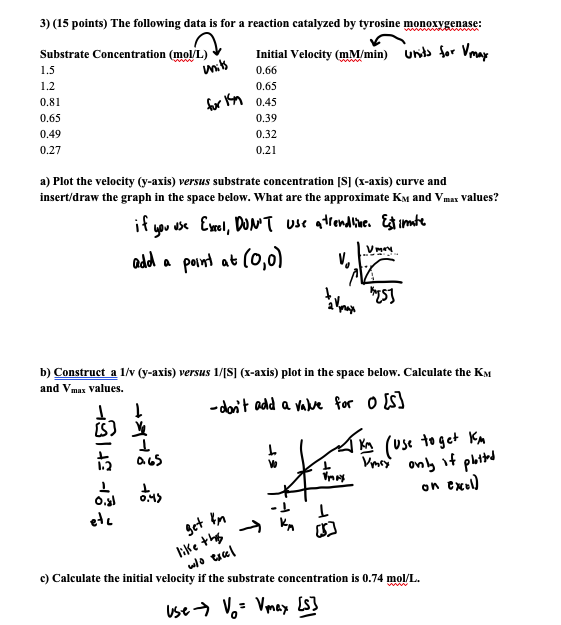 3) (15 points) The following data is for a reaction catalyzed by tyrosine monoxygenase:
Substrate Concentration (mol/L) Initial Velocity (mM/min) units for Vmax
1.5 0.66
units
1.2 0.65
0.81 0.45
for Km
0.65 0.39
0.49 0.32
0.27 0.21
a) Plot the velocity (y-axis) versus substrate concentration [S] (x-axis) curve and
insert/draw the graph in the space below. What are the approximate KM and Vmax values?
if you use Excel, DON'T use a trendline. Estimate
add a point at (0,0)
Vmax
V₀
½Vmax
Km
[S]
b) Construct a 1/v (y-axis) versus 1/[S] (x-axis) plot in the space below. Calculate the KM
and Vmax values.
- don't add a value for 0 [S]
1/[S] 1/V₀
1/1.2 1/0.65
1/0.81 1/0.45
etc
1/V₀
Km/Vmax (use to get Km
only if plotted
on excel)
1/Vmax
-1/Km
1/[S]
get Km
like this
w/o excel
c) Calculate the initial velocity if the substrate concentration is 0.74 mol/L.
use → V₀ = Vmax [S]